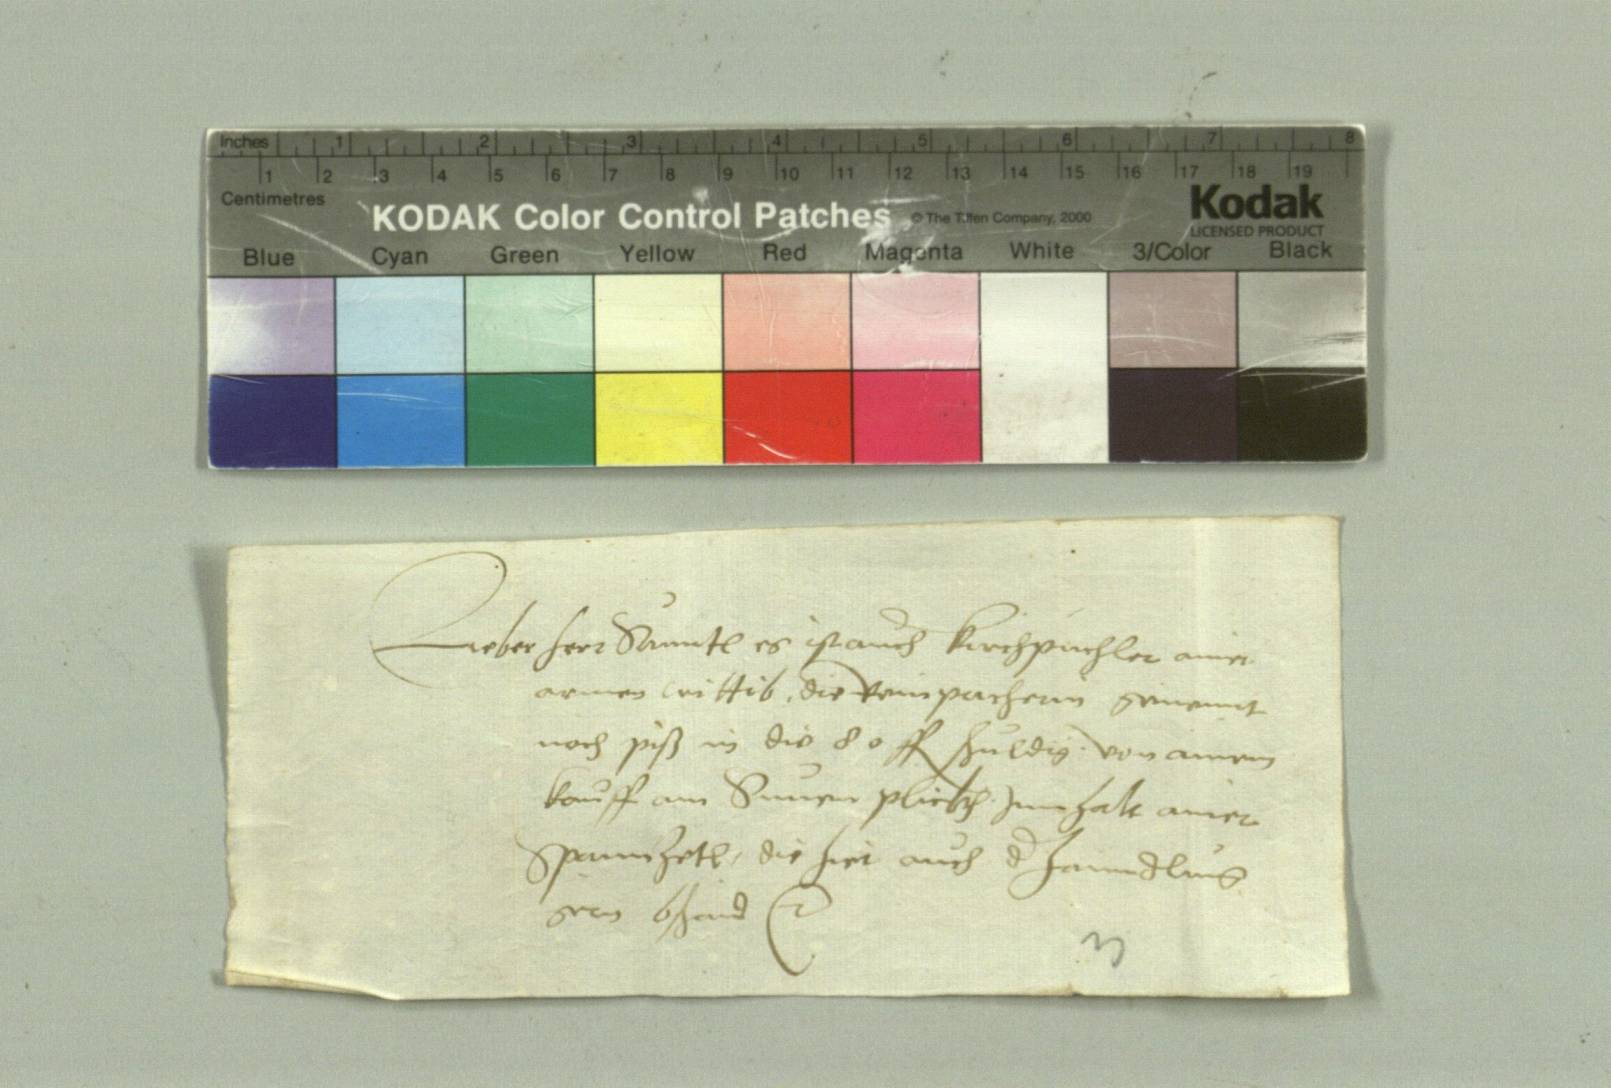 Inches 1 2 3 4 5 6 7 8
1 2 3 4 5 6 7 8 9 10 11 12 13 14 15 16 17 18 19
Centimetres
KODAK Color Control Patches © The Tiffen Company, 2000 Kodak
LICENSED PRODUCT
Blue Cyan Green Yellow Red Magenta White 3/Color Black
Lieber herr es ist auch kirchpuchler ainer
armen wittib, die genennt
noch piß in die 80 ff schuldig von ainem
kauff am Innhalt ainer
Spannzetl, die hiet auch
gern bschaid